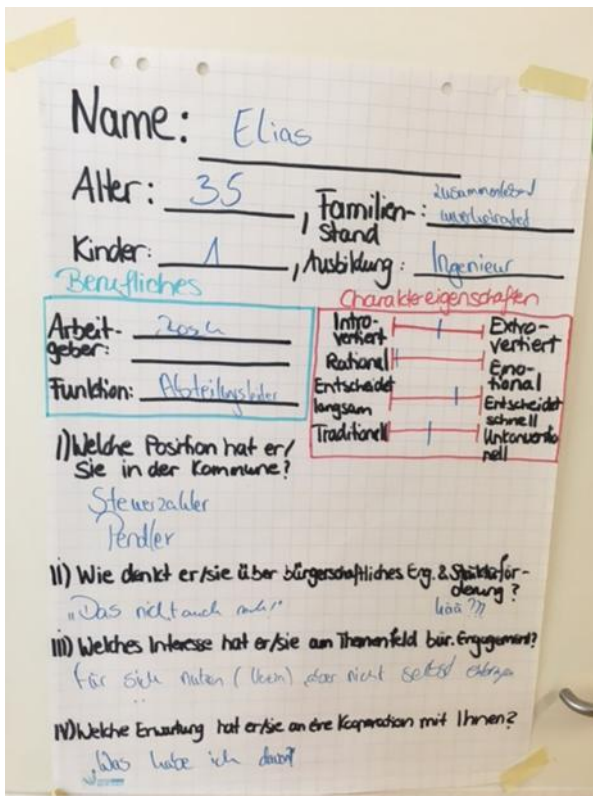 Name: Elias
Alter: 35, Familien-stand: zusammenlebend unverheiratet
Kinder: 1, Ausbildung: Ingenieur
Berufliches
Arbeit-geber: Bosch
Funktion: Abteilungsleiter
Charaktereigenschaften
Intro-vertiert Extro-vertiert
Rational Emo-tional
Entscheidet langsam Entscheidet schnell
Traditionell Unkonventionell
I) Welche Position hat er/
Sie in der Kommune?
Steuerzahler
Pendler
II) Wie denkt er/sie über bürgerschaftliches Eng. &
derung?
„Das nicht auch noch!"
hää ???
III) Welches Interesse hat er/sie am Themenfeld bür. Engagement?
für sich nutzen (Verein), aber nicht selbst
IV) Welche Erwartung hat er/sie an eine Kooperation mit Ihnen?
Was habe ich davon?